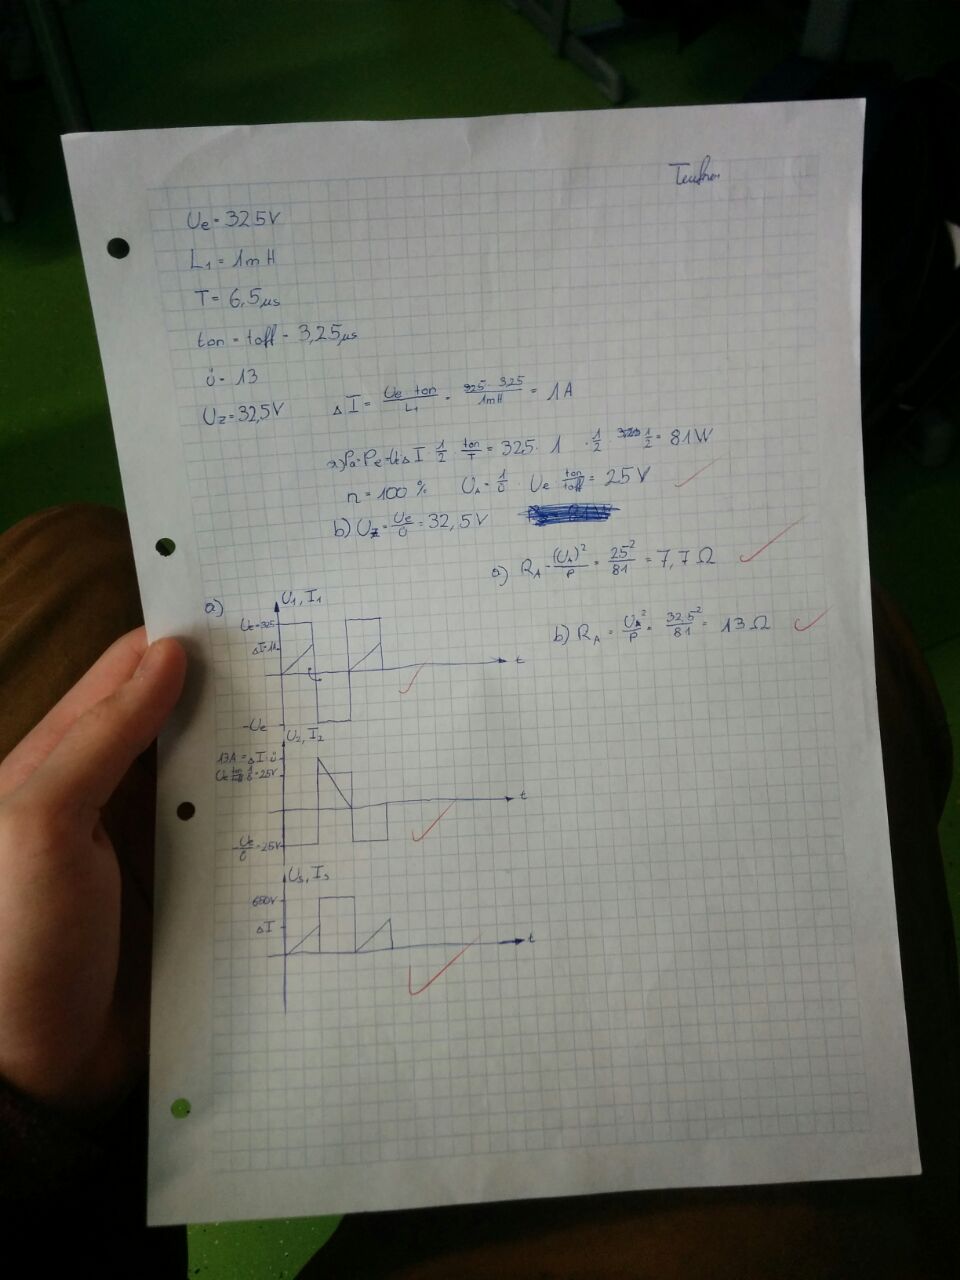 Ue = 325V
L1 = 1mH
T = 6,5µs
ton = toff = 3,25µs
ü = 13
Uz = 32,5V
ΔI = Ue ton / L1 = 325 · 3,25 / 1mH = 1A
a) Pa = Pe = Ue ΔI · 1/2 · ton/T = 325 · 1 · 1/2 · 1/2 = 81W
η = 100% UA = 1/ü · Ue ton/toff = 25V
b) Uz = Ue/ü = 32,5V
a) RA = (UA)² / P = 25² / 81 = 7,7 Ω
b) RA = UA² / P = 32,5² / 81 = 13 Ω
a)
U1, I1
Ue = 325
ΔI = 1A
t
-Ue
U2, I2
13A = ΔI · ü
Ue ton/toff 1/ü = 25V
t
-Ue/ü = 25V
Us, Is
650V
ΔI
t